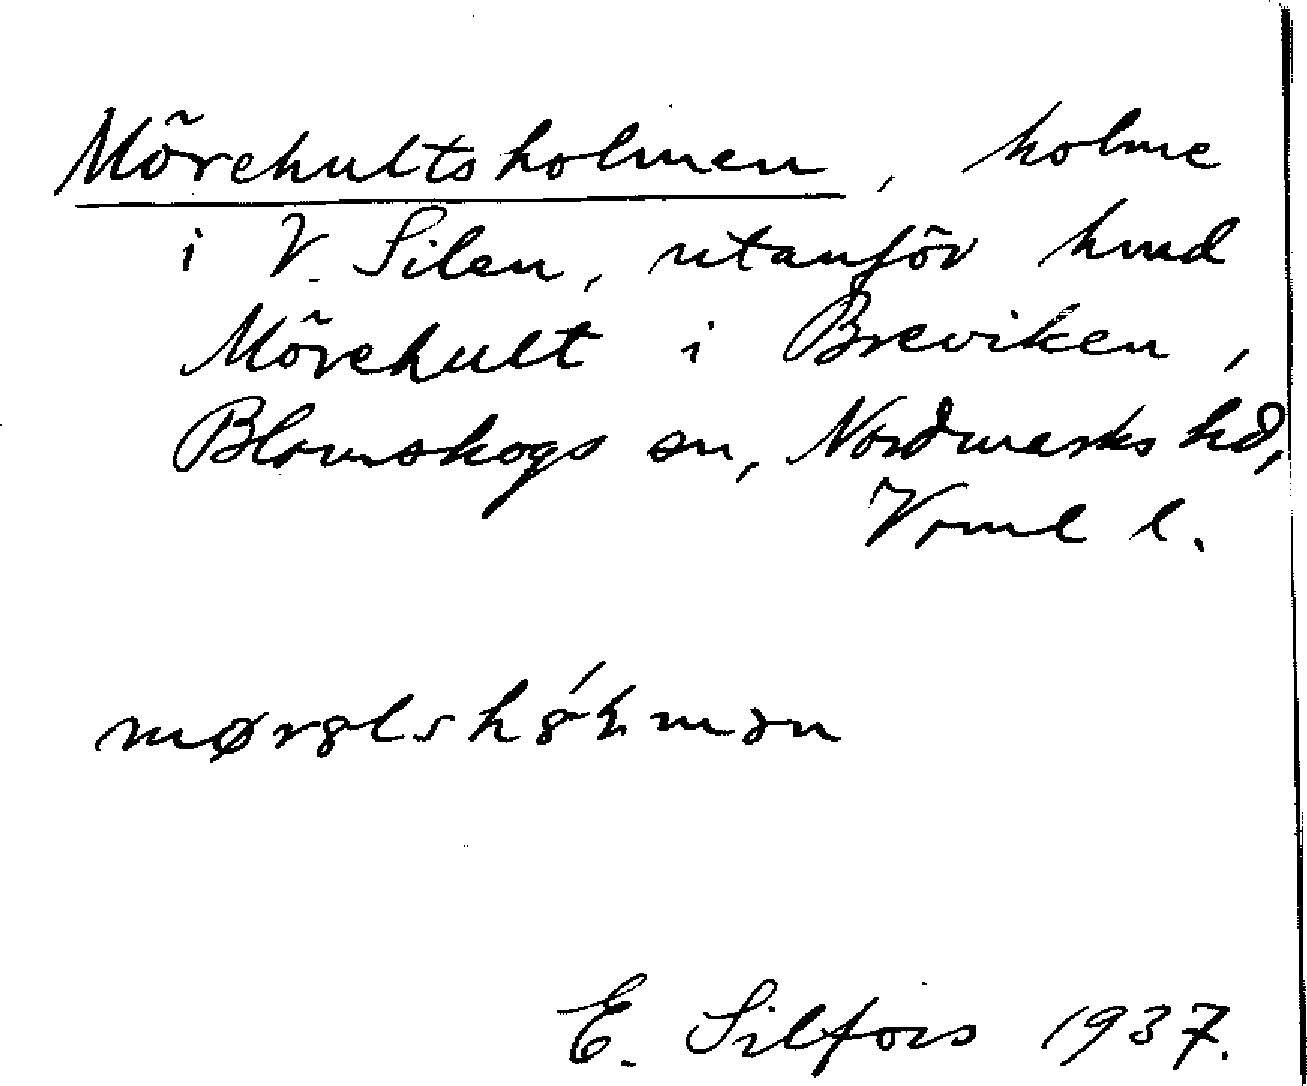 Mörehultsholmen, holme
i V. Silen, utanför hmd
Mörehult i Breviken,
Blomskogs sn, Nordmarks hd,
Vrml l.
E. Silfors 1937.